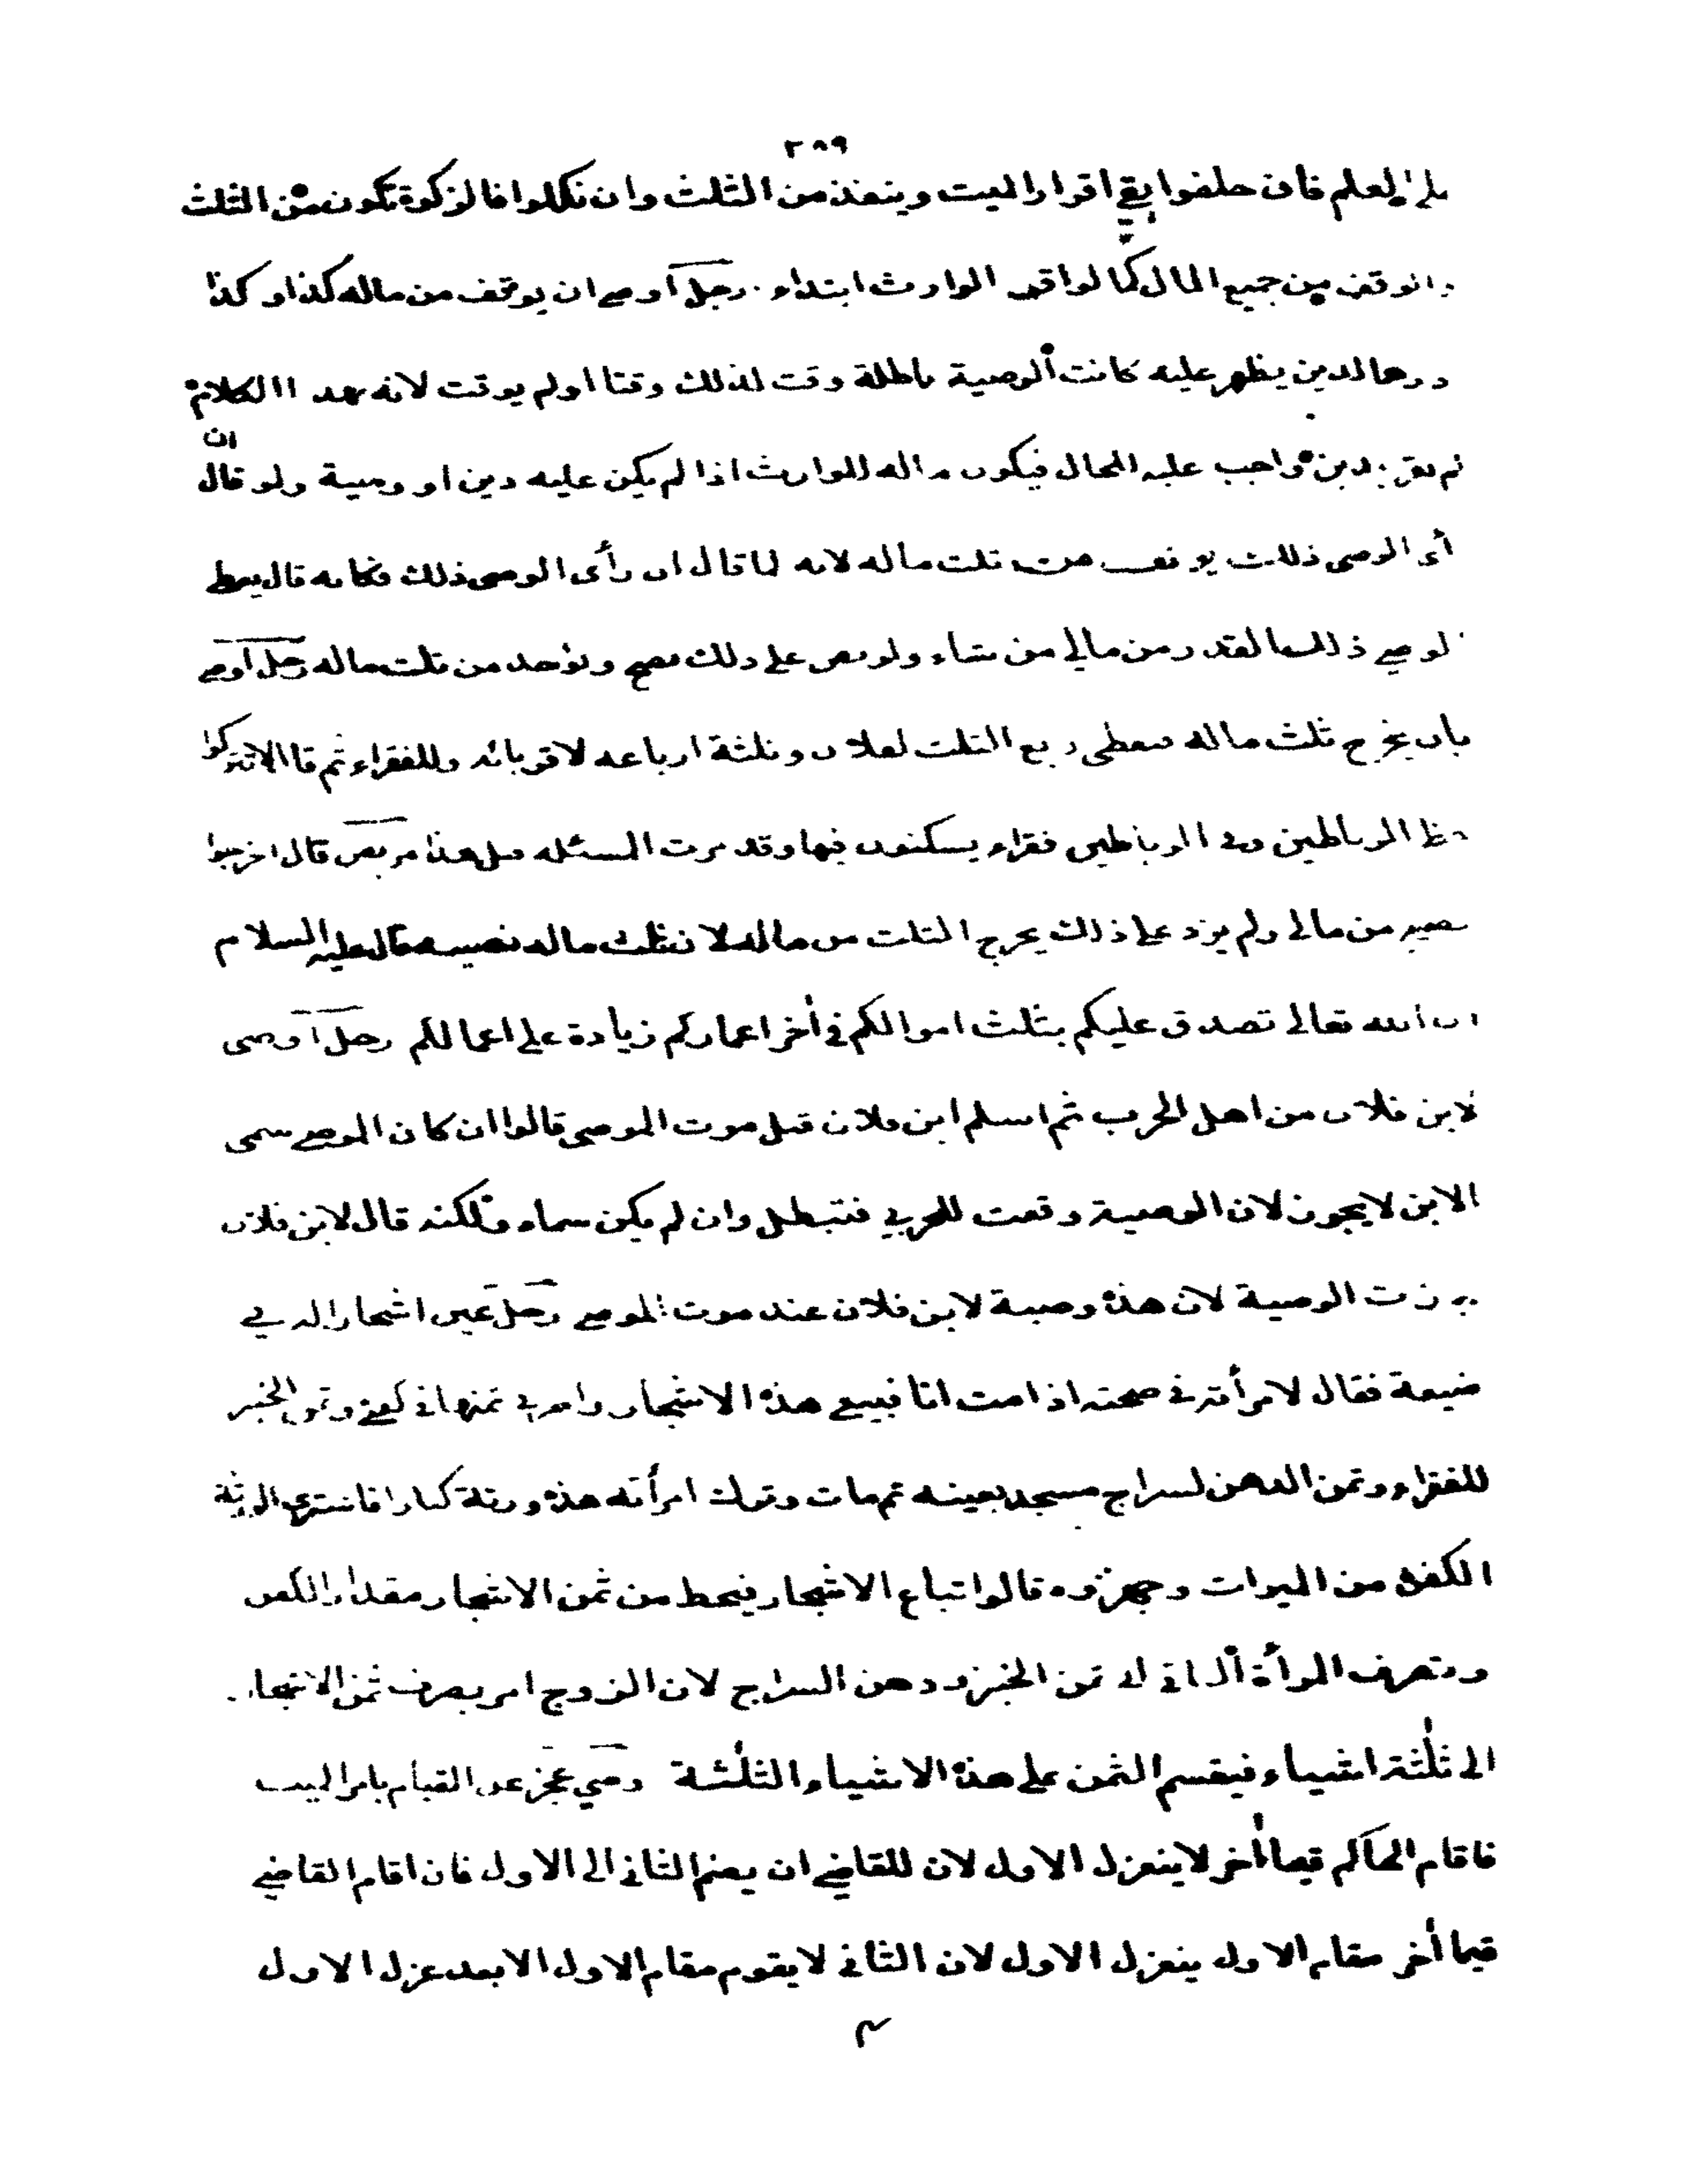 ٢٨٩
العلم فان حلفوا بقي اقرار الميت وينفذ من الثلث وان نكلوا فالزكوة تكون من الثلث
والوقف من جميع المال كما لو اقر الوارث ابتداء رجل اوصى ان يوقف من ماله كذا وكذا
درهما لدين يظهر عليه كانت الوصية باطلة وقت لذلك وقتا اولم يوقت لانه بهذا الكلام
لم يقر بدين واجب عليه للحال فيكون ماله للوارث اذا لم يكن عليه دين او وصية ولو قال ان
رأى الوصى ذلك يوقف من ثلث ماله لانه لما قال ان رأى الوصى ذلك فكانه قال يعطى
الوصي ذلك القدر من مالي من شاء ولو نص على ذلك يصح ويؤخذ من ثلث ماله رجل اوصى
بان يخرج ثلث ماله فيعطى ربع الثلث لفلان وثلثة ارباعه لاقربائه وللفقراء ثم قال لا تتركوا
حظ الرباطين وفي الرباطين فقراء يسكنون فيها وقد مرت المسئله قبل هذا مريض قال اخرجوا
نصيبي من مالى ولم يزد على ذلك يخرج الثلث من ماله لان ثلث ماله نصيبه قال عليه السلام
ان الله تعالى تصدق عليكم بثلث اموالكم في أخر اعماركم زيادة على اعمالكم رجل اوصى
لابن فلان من اهل الحرب ثم اسلم ابن فلان قبل موت الموصى قالوا ان كان الموصى سمى
الابن لا يجوز لان الوصية وقعت للحربي فتبطل وان لم يكن سماه ولكنه قال لابن فلان
جازت الوصية لان هذه وصية لابن فلان عند موت الموصي رجل عين اشجارا له في
ضيعة فقال لامرأته في صحته اذا مت انا فبيعي هذه الاشجار واصرفي ثمنها في كفني وثمن الخبز
للفقراء وثمن الدهن لسراج مسجد بعينه ثم مات وترك امرأته هذه وورثة كبارا فاشترى الورثة
الكفن من الميراث وجهزوه قالوا تباع الاشجار فيحط من ثمن الاشجار مقدار الكفن
وتصرف المرأة الباقي الى ثمن الخبز ودهن السراج لان الزوج امر بصرف ثمن الاشجار
الى ثلثة اشياء فيقسم الثمن على هذه الاشياء الثلثة وصي عجز عن القيام بامر الميت
فاقام الحاكم قيما أخر لا ينعزل الاول لان للقاضي ان يضم الثاني الى الاول فان اقام القاضي
قيما أخر مقام الاول ينعزل الاول لان الثاني لا يقوم مقام الاول الا بعد عزل الاول